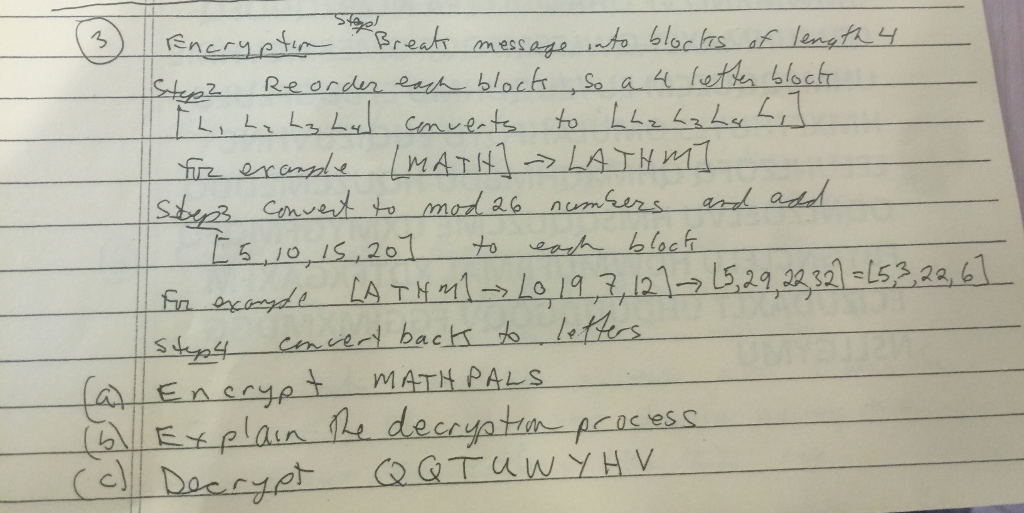 ③ Encryption Step1 Break message into blocks of length 4
Step2 Reorder each block, so a 4 letter block
[L1 L2 L3 L4] converts to [L2 L3 L4 L1]
for example [MATH] → [ATHM]
Step3 convert to mod 26 numbers and add
[5, 10, 15, 20] to each block
For example [ATHM] → [0, 19, 7, 12] → [5, 29, 22, 32] = [5, 3, 22, 6]
Step4 convert back to letters
(a) Encrypt MATH PALS
(b) Explain the decryption process
(c) Decrypt QQTUWYHV